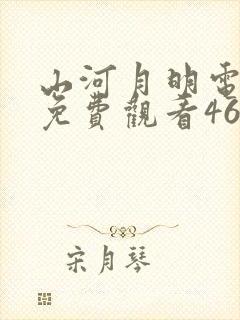 山河月明電
免費觀看46
宋月琴